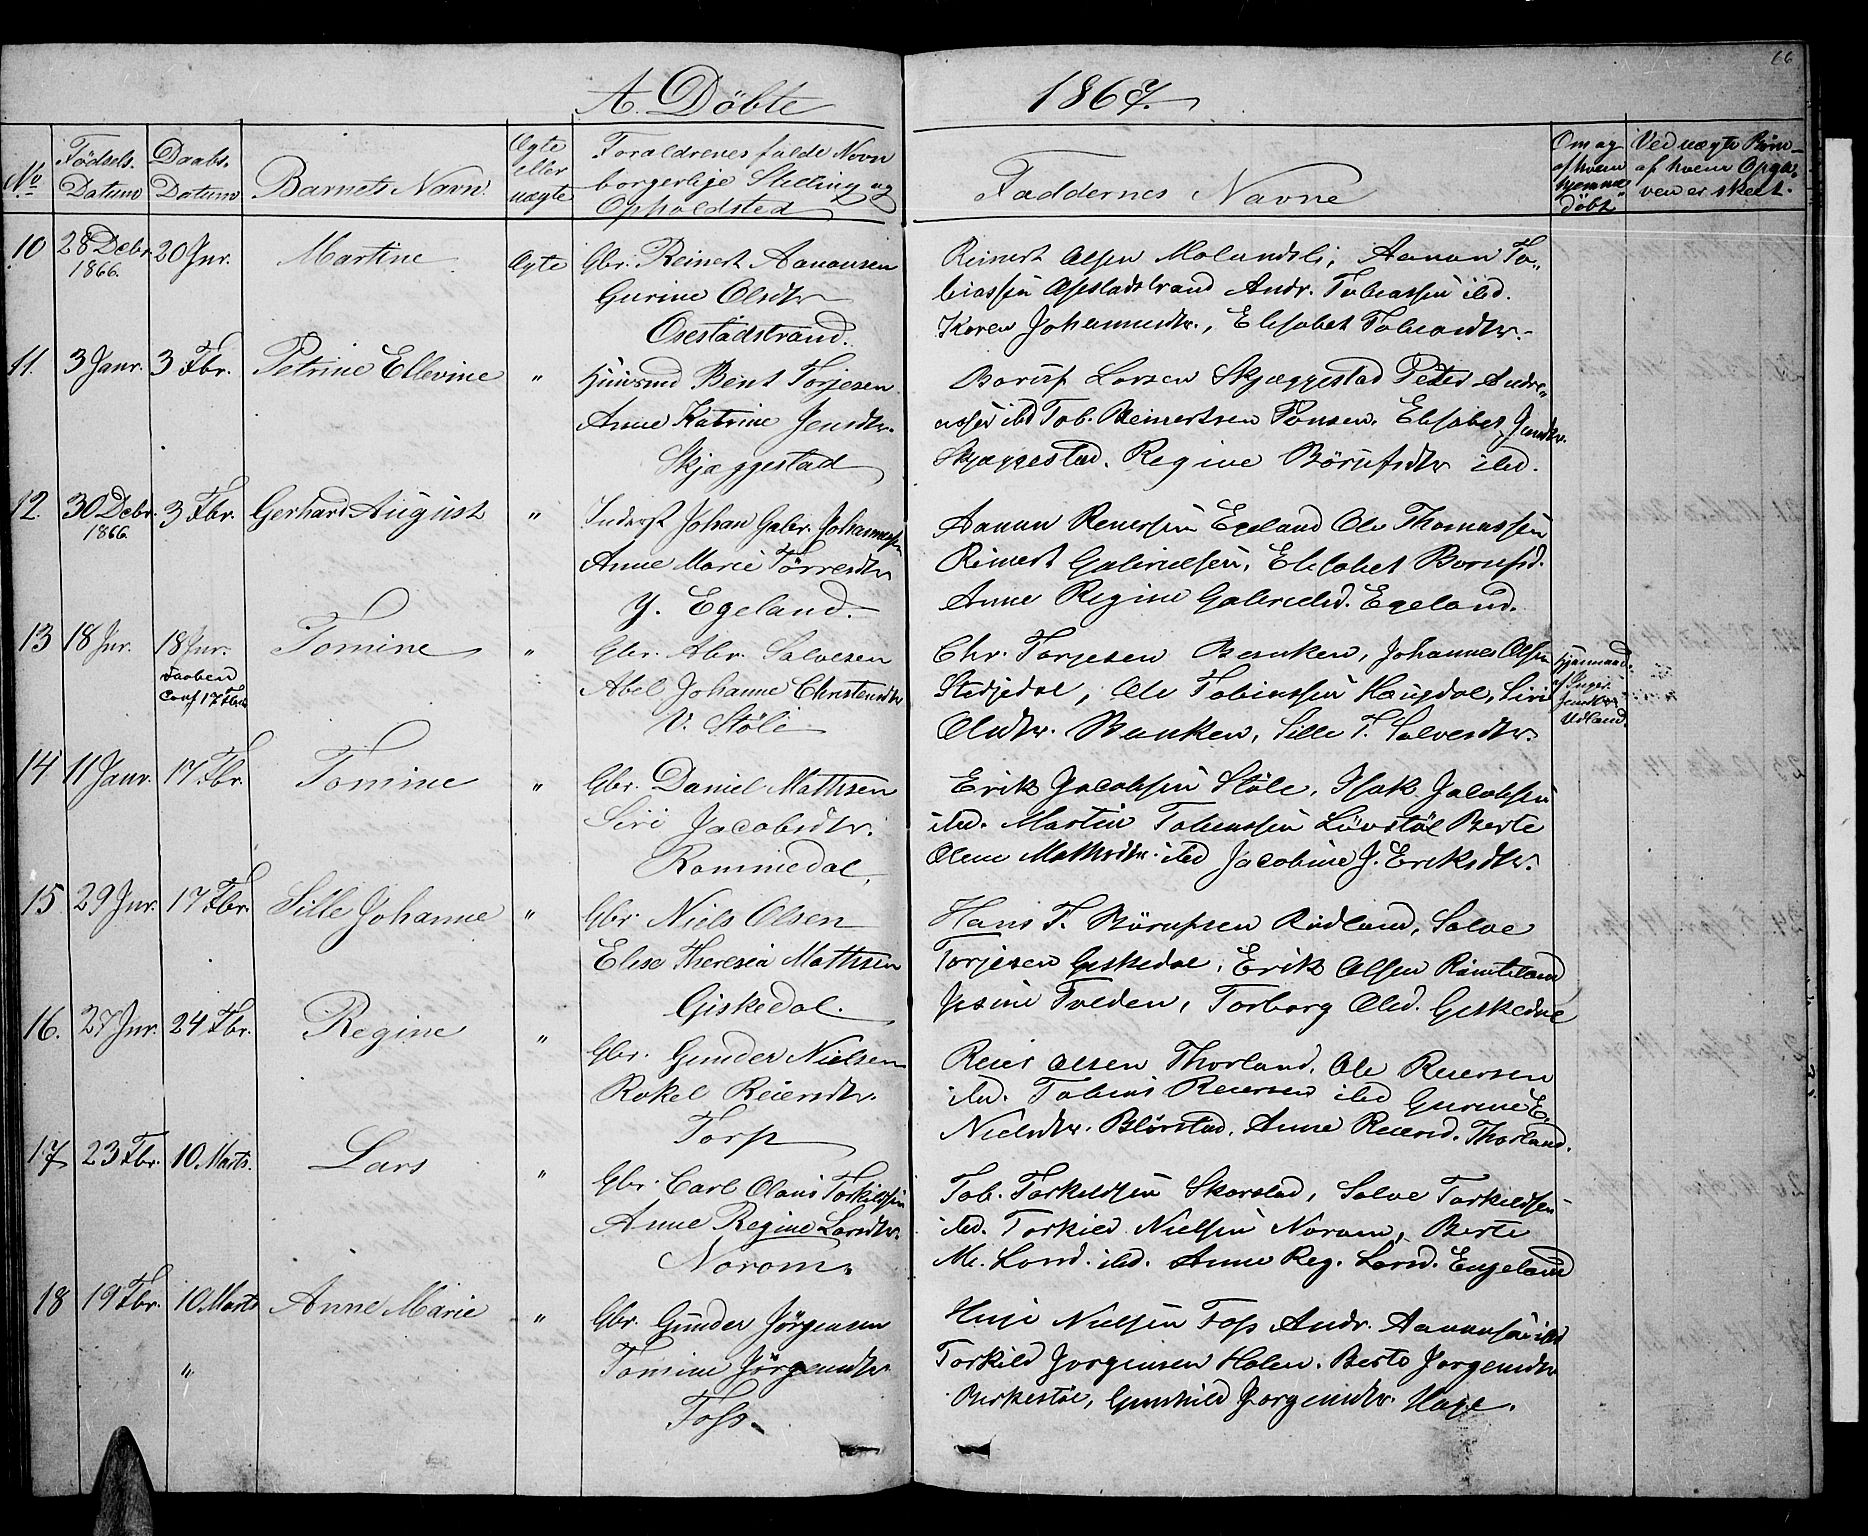 66
A. Döbte 1867.
No Fødsels. Datum Daabs. Datum Barnets Navn. Ægte eller uægte Forældrenes fulde Navn borgerlige Stilling og Opholdsted Faddernes Navne Om og af hvem hjemmedöbt Ved uægte Börn af hvem Opgaven er skeet.
10 28 Debr. 1866. 20 Jnr. Martine Ægte Gbr. Reinert Aanonsen
Gurine Olsdtr
Osestadstrand.
Reinert Olsen Molandsli, Aanon To-
biassen Osestadstrand Andr. Tobiassen ibd.
Karen Johannesdtr., Elisabet Tobiasdtr.
11. 3 Janr. 3 Fbr. Petrine Ellevine " Huusmd Bent Torjesen
Anne Katrine Jensdtr.
Skjæggestad
Böruf Larsen Skjæggestad Peder Andre-
assen ibd Tob. Reinertsen Elisabet Jensdtr.
Skjæggestad. Regine Börufsdtr ibd.
12. 30 Debr. 1866 3 Fbr. Gerhard August " Inderst Johan Gabr. Johannessen
Anne Marie Törresdtr
Y. Egeland.
Aanon Reiersen Egeland Ole Thomassen
Reinert Gabrielsen, Elisabet Börufsd.
Anne Regine Gabrielsd. Egeland.
13 18 Jnr. 18 Jnr. Daaben Conf 17 Fbr Tomine " Gbr. Abr. Salvesen
Abel Johanne Christensdtr
V. Stöle
Chr. Torjesen Banken, Johannes Olsen
Stedjedal, Ole Tobiassen Haugdal, Siri
Olsdtr. Banken, Sille T. Salvesdtr.
Hjemmed. af Inger Jensdtr Udland.
14 11 Janr. 17 Fbr. Tomine " Gbr. Daniel Mathisen
Siri Jacobsdtr.
Rommedal.
Erik Jacobsen Stöle, Isak Jacobsen
ibd. Martin Tobiassen Lövstöl Berte
Olene Mathisdtr. ibd Jacobine J. Eriksdtr.
15 29 Jnr. 17 Fbr. Sille Johanne " Gbr. Niels Olsen
Elise Theresia Mathisen
Giskedal.
Hans T. Börufsen Rödland, Salve
Torjesen Giskedal, Erik Olsen
Tveden, Torborg Olsd. Giskedal
16. 27 Jnr. 24 Fbr. Regine " Gbr. Gunder Nielsen
Rakel Reiersdtr.
Torp
Reier Olsen Thorland, Ole Reiersen
ibd. Tobias Reiersen ibd Gurine E.
Nielsdtr. Blörstad, Anne Reiersd. Thorland.
17 23 Fbr. 10 Marts. Lars " Gbr. Carl Olaus Torkildsen
Anne Regine Larsdtr.
Narom.
Tob. Torkildsen Skarstad, Salve Torkildsen
ibd. Torkild Nielsen Narom, Berte
M. Larsd. ibd. Anne Reg. Larsd. Engeland
18 19 Fbr. 10 Marts Anne Marie " Gbr. Gunder Jörgensen
" Tomine Jörgensdtr
Foss.
Nielsen Foss Andr. Aanonsen ibd
Torkild Jorgensen Holen. Berte Jorgensdtr
Birkestöl, Gunhild Jorgensdtr. Haje.